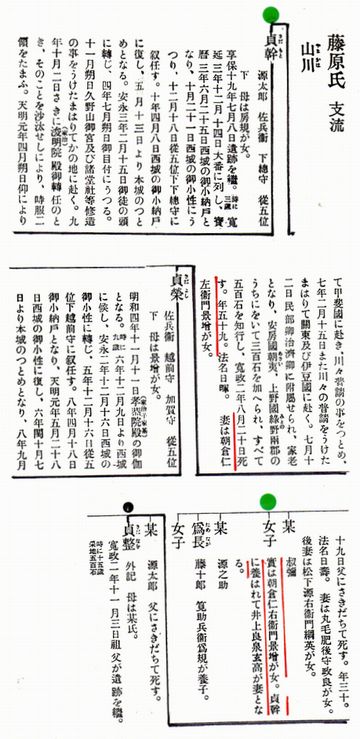 藤原氏 支流
山川
貞幹
源太郎 佐兵衞 下總守 從五位
下 母は房親が女。
享保十九年七月八日遺跡を繼。時に三歳 寛
延三年十二月十四日大番に列し、寶
曆三年六月二十五日西城の御小納戶と
なり、十月二十一日西城の御小性にう
つり、十二月十八日從五位下下總守に
敍任す。十年四月八日西城の御小納戶
に復し、五月十三日より本城のつと
めとなる。安永三年十二月十五日御徒の頭
に轉じ、四年七月朔日御目付にうつる。
十一月朔日久野山御宮及び諸堂社等修造
の事をうけたまはりてかの地に赴く。九
年十月二日さきに浚明院殿御轉任のと
き、そのことを沙汰せしにより、時服二
領をたまふ。天明元年四月朔日仰により
て甲斐國に赴き、川々普請の事をつとめ、
七年二月十五日また川々の普請をうけた
まはりて關東及び伊豆國に赴く。七月十
二日民部卿治濟卿に附屬せられ、家老
となり、安房國朝夷、上野國綠野兩郡の
うちにをいて三百石を加へられ、すべて
五百石を知行し、寛政二年八月二十日死
す。年五十九。法名日暉。 妻は朝倉仁
左衞門景增が女。
貞榮
佐兵衞 越前守 加賀守 從五位
下 母は景增が女。
明和四年十一月十一日孝恭院殿の御伽
となる。時に九歳 六年十二月九日より西城
に候し、安永二年十二月十六日西城の
御小性に轉じ、五年十二月十六日從五
位下越前守に敍任す。八年四月十八日
御小納戶となり、天明元年五月二十八
日西城の御小性に復し、六年閏十月七
日より本城のつとめとなり、八年九月
十九日父にさきだちて死す。年三十。
法名日壽。 妻は丸毛肥後守政良が女。
後妻は松下源右衞門綱英が女。
某
叔彌
女子
實は朝倉仁右衞門景增が女。貞幹
に養はれて井上良泉玄高が妻とな
る。
某
源之助
爲長
藤十郎 筧助兵衞爲規が養子。
女子
某
源太郎 父にさきだちて死す。
貞整
外記 母は某氏。
寛政二年十一月三日祖父が遺跡を繼。
時に十五歳
采地五百石